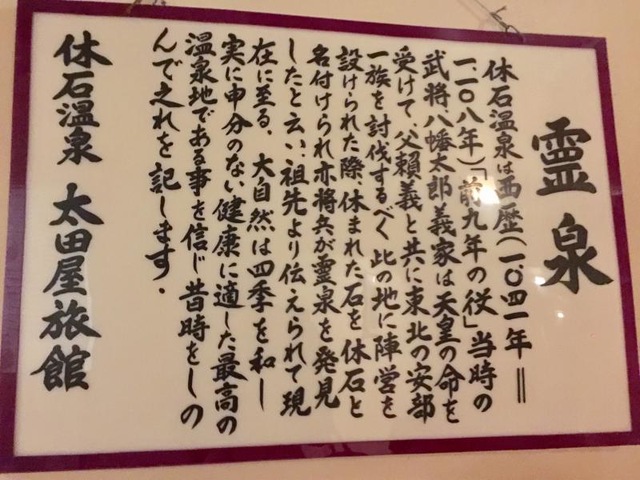 霊泉
休石温泉は西歴(一、〇四一年=
一、一〇八年)「前九年の役」当時の
武将八幡太郎義家は天皇の命を
受けて、父頼義と共に東北の安部
一族を討伐するべく此の地に陣営を
設けられた際、休まれた石を休石と
名付けられ亦将兵が霊泉を発見
したと云い、祖先より伝えられて現
在に至る、大自然は四季を和し
実に申分のない健康に適した最高の
温泉地である事を信じ昔時をしの
んで之れを記します.
休石温泉 太田屋旅館